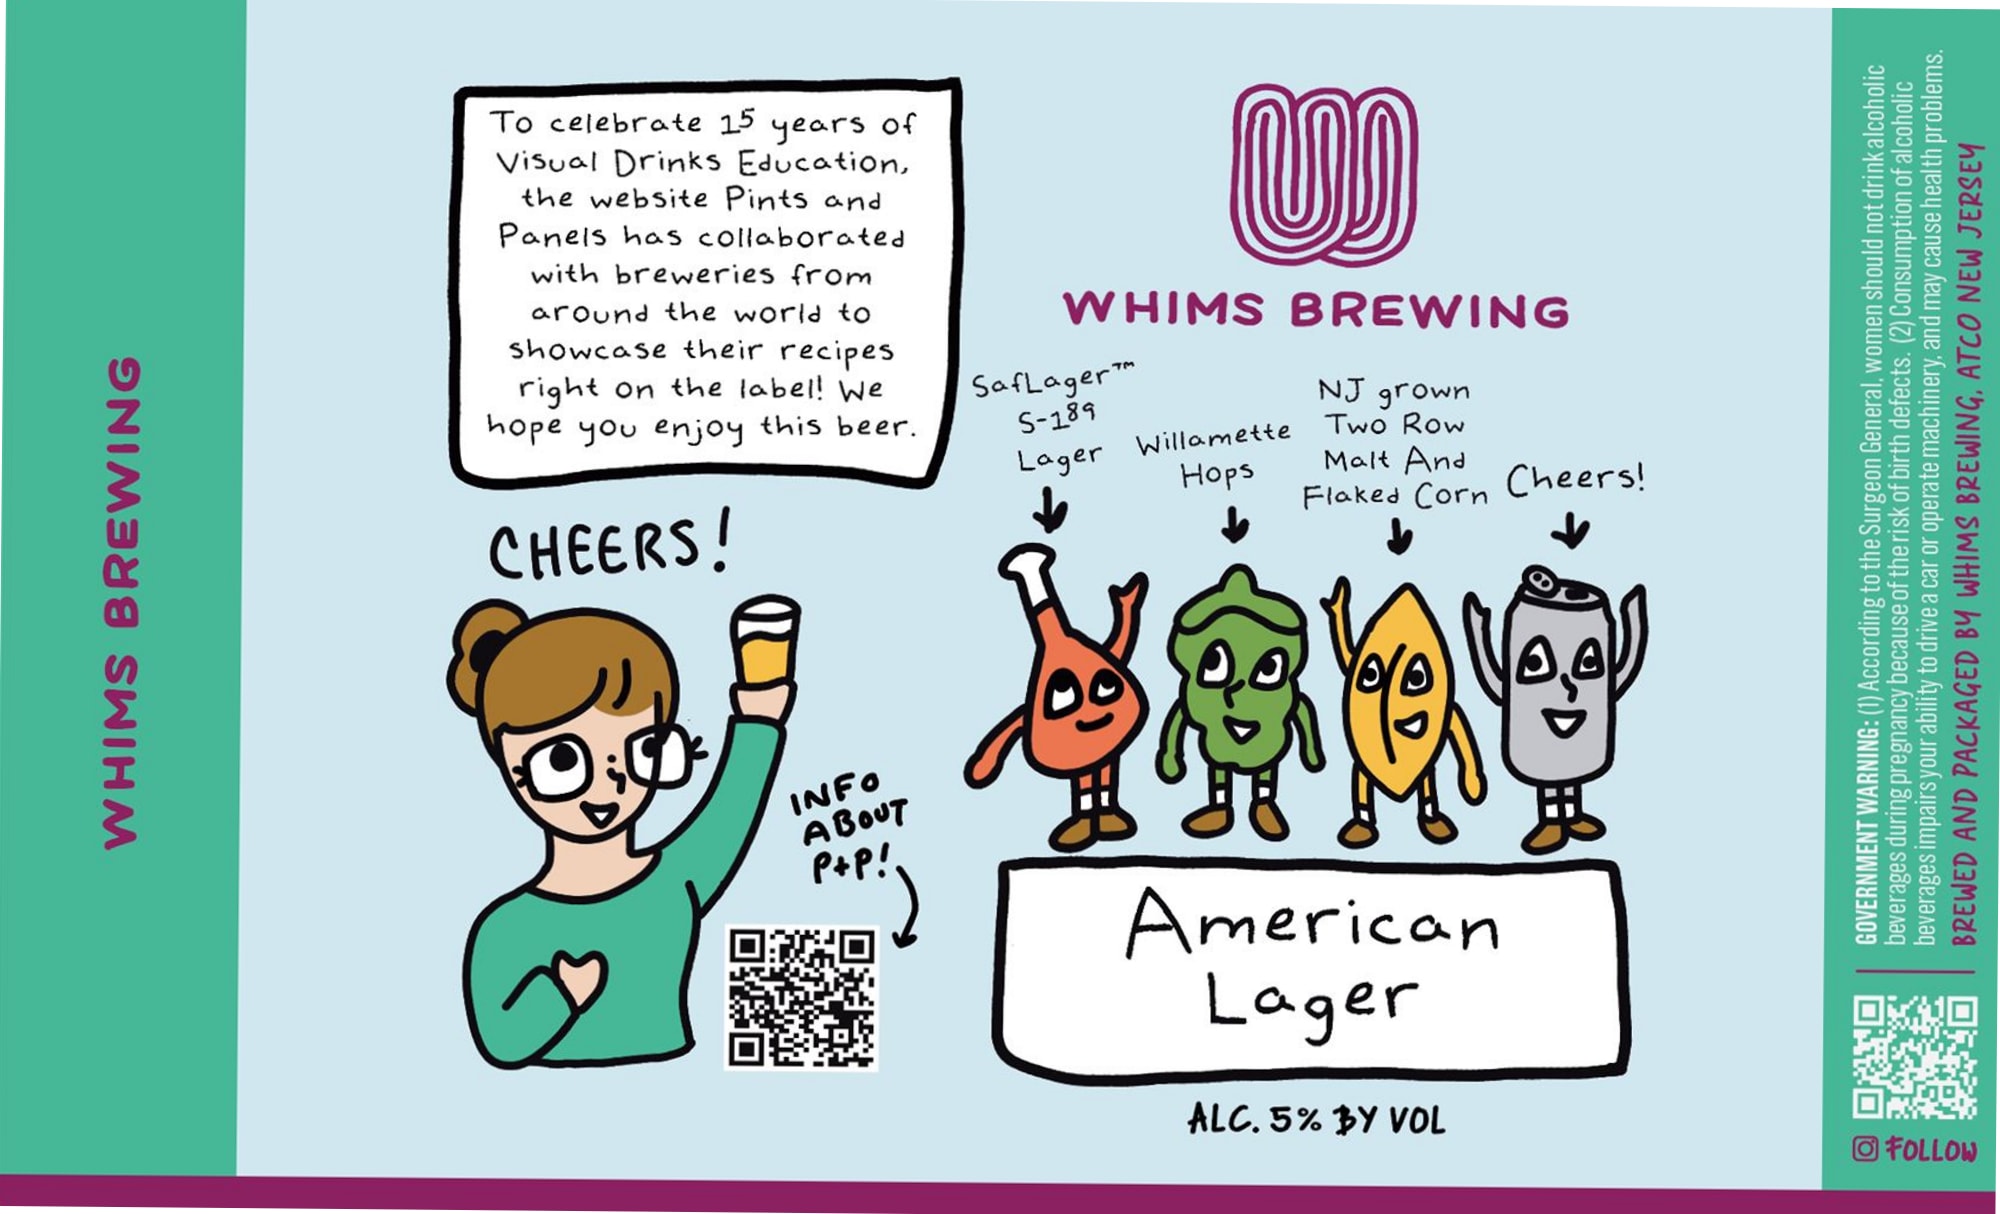 WHIMS BREWING
To celebrate 15 years of
Visual Drinks Education,
the website Pints and
Panels has collaborated
with breweries from
around the world to
showcase their recipes
right on the label! We
hope you enjoy this beer.
CHEERS!
INFO
ABOUT
P+P!
WHIMS BREWING
SafLager™
S-189
Lager
Willamette
Hops
NJ grown
Two Row
Malt And
Flaked Corn
Cheers!
American
Lager
ALC. 5% BY VOL
GOVERNMENT WARNING: (1) According to the Surgeon General, women should not drink alcoholic
beverages during pregnancy because of the risk of birth defects. (2) Consumption of alcoholic
beverages impairs your ability to drive a car or operate machinery, and may cause health problems.
BREWED AND PACKAGED BY WHIMS BREWING, ATCO NEW JERSEY
FOLLOW